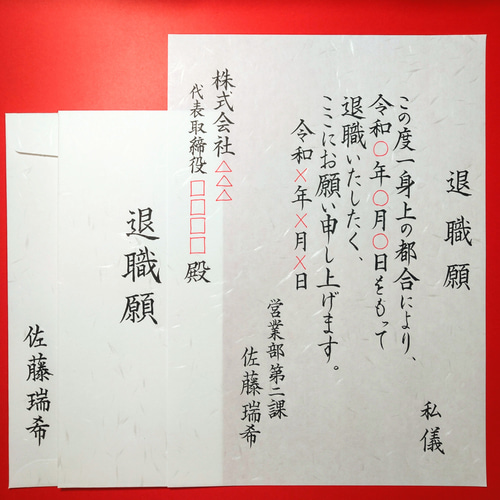 退職願
私儀
この度一身上の都合により、
令和〇年〇月〇日をもって
退職いたしたく、
ここにお願い申し上げます。
令和×年×月×日
営業部第二課
佐藤瑞希
株式会社△△△
代表取締役□□□□殿
退職願
佐藤瑞希